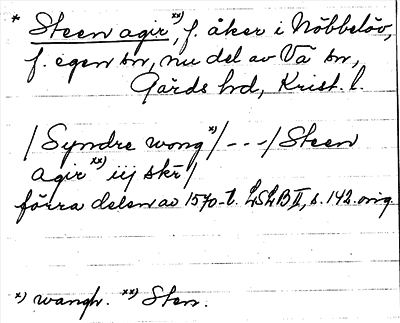 * Steen agir xx), f. åker i Nöbbelöv,
f. egen sn, nu del av Vä sn,
Gärds hd, Krist. l.
/Syndre wong x)/ - - -/Steen
agir xx) iij skr/
förra delen av 1570-t. LSLB II, s. 142. orig.
x) wangh. xx) Sten.